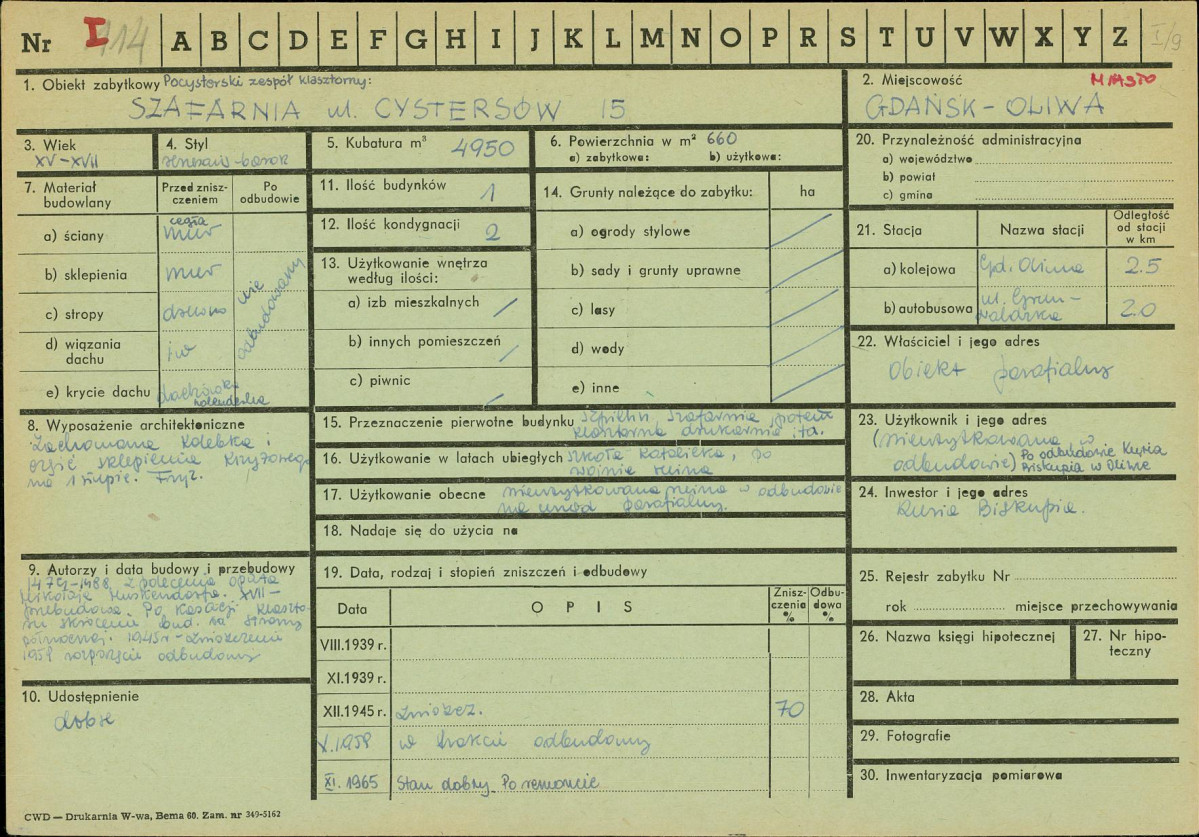 Nr I 414 A B C D E F G H I J K L M N O P R S T U V W X Y Z I/9
1. Obiekt zabytkowy Pocysterski zespół klasztorny:
SZAFARNIA ul. CYSTERSÓW 15
2. Miejscowość MIASTO
GDAŃSK-OLIWA
3. Wiek
XV-XVII
4. Styl
renesans-barok
5. Kubatura m³ 4950
6. Powierzchnia w m² 660
a) zabytkowa: b) użytkowa:
7. Materiał budowlany
Przed zniszczeniem
Po odbudowie
a) ściany cegła mur
b) sklepienia mur
c) stropy drewno
d) wiązania dachu jw
e) krycie dachu dachówka holenderka
nie odbudowany
8. Wyposażenie architektoniczne
Zachowana kolebka i
część sklepienia krzyżowego
na 1 słupie. Fryz.
9. Autorzy i data budowy i przebudowy
1479-1488 z polecenia opata
Mikołaja XVII-
przebudowa. Po kasacji klaszto-
ru skrócenie bud. na strony
północnej. 1945r - zniszczenie
1958 rozpoczęcie odbudowy
10. Udostępnienie
dobre
11. Ilość budynków 1
12. Ilość kondygnacji 2
13. Użytkowanie wnętrza
według ilości:
a) izb mieszkalnych /
b) innych pomieszczeń /
c) piwnic /
14. Grunty należące do zabytku: ha
a) ogrody stylowe /
b) sady i grunty uprawne /
c) lasy /
d) wody /
e) inne /
15. Przeznaczenie pierwotne budynku Szafarnia, potem
klasztorna drukarnia itd.
16. Użytkowanie w latach ubiegłych Szkoła katolicka, po
wojnie ruina
17. Użytkowanie obecne nieużytkowana ruina w odbudowie
na urząd parafialny.
18. Nadaje się do użycia na
19. Data, rodzaj i stopień zniszczeń i odbudowy
Data OPIS Zniszczenia % Odbudowa %
VIII.1939 r.
XI.1939 r.
XII.1945 r. zniszcz. 70
X.1958 w trakcie odbudowy
XI.1965 Stan dobry. Po remoncie
20. Przynależność administracyjna
a) województwo
b) powiat
c) gmina
21. Stacja Nazwa stacji Odległość od stacji w km
a) kolejowa Gd. Oliwa 2.5
b) autobusowa ul. Grun-
waldzka 2.0
22. Właściciel i jego adres
Obiekt parafialny
23. Użytkownik i jego adres
(nieużytkowana w
odbudowie) Po odbudowie Kuria
Biskupia w Oliwie
24. Inwestor i jego adres
Kuria Biskupia.
25. Rejestr zabytku Nr
rok miejsce przechowywania
26. Nazwa księgi hipotecznej
27. Nr hipoteczny
28. Akta
29. Fotografie
30. Inwentaryzacja pomiarowa
CWD — Drukarnia W-wa, Bema 60. Zam. nr 349-5162